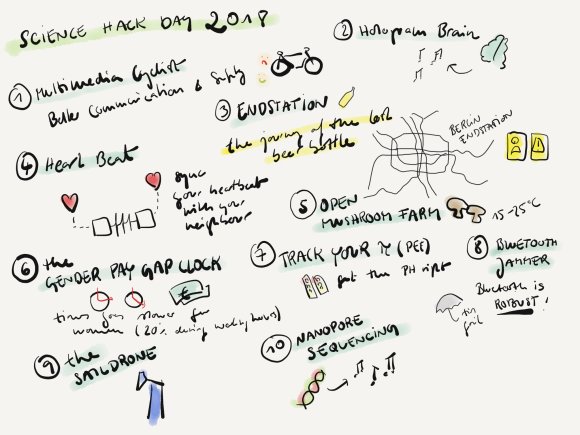 SCIENCE HACK DAY 2018
① Multimedia Cyclist
Better Communication & Safety
② Hologram Brain
③ ENDSTATION
the journey of the lost
beer bottle
BERLIN
ENDSTATION
④ Heart Beat
sync
your heartbeat
with your
neighbour
⑤ OPEN
MUSHROOM FARM
15-25°C
⑥ the
GENDER PAY GAP CLOCK
€
time goes slower for
women (20% during working hours)
⑦ TRACK YOUR
(PEE)
get the PH right
⑧ BLUETOOTH
JAMMER
Bluetooth is
ROBUST!
tin
foil
⑨ the
SAILDRONE
⑩ NANOPORE
SEQUENCING